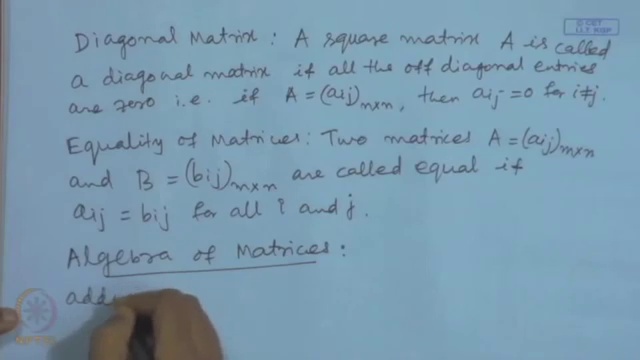 © CET
I.I.T. KGP
Diagonal Matrix : A square matrix A is called
a diagonal matrix if all the off diagonal entries
are zero i.e. if A = (aij)n×n, then aij = 0 for i≠j.
Equality of Matrices: Two matrices A = (aij)m×n
and B = (bij)m×n are called equal if
aij = bij for all i and j.
Algebra of Matrices :
add